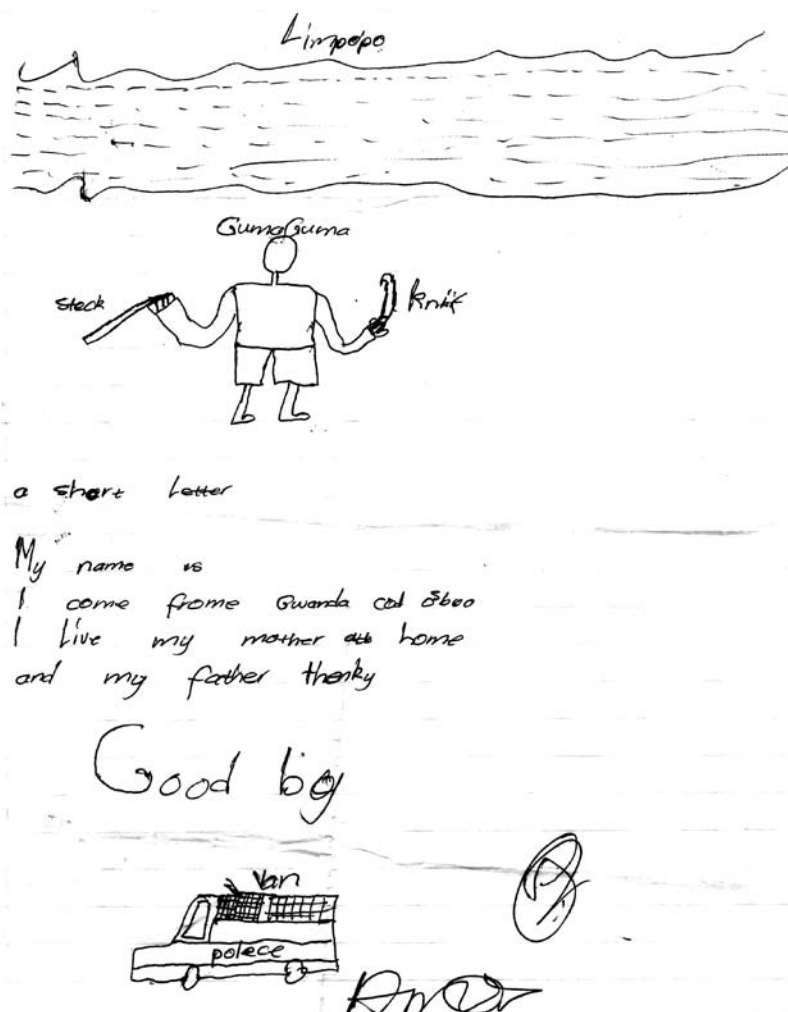 Limpopo
GumaGuma
steck
knif
a short Letter
My name is
I come frome Gwanda cod
I Live my mother home
and my father thenky
Good by
Van
polece